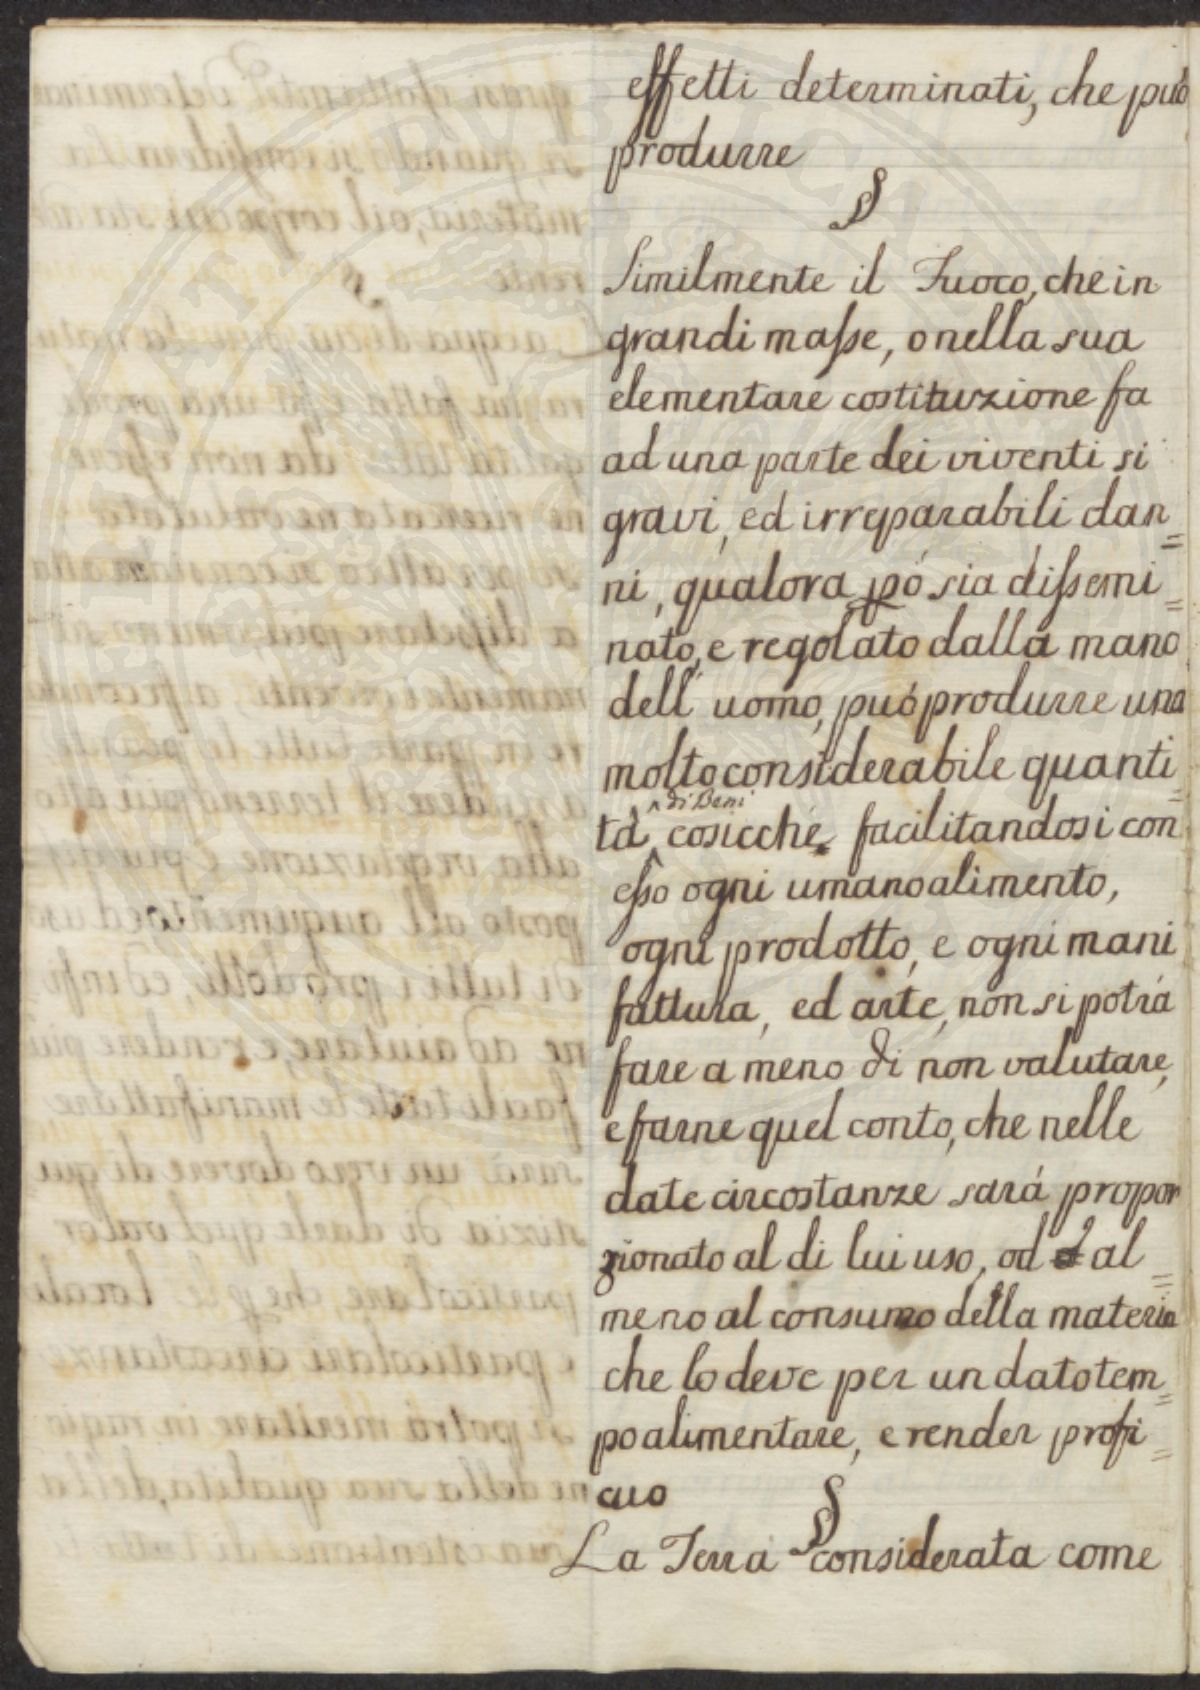 effetti determinati, che può
produrre
§
Similmente il Fuoco, che in
grandi masse, o nella sua
elementare costituzione fa
ad una parte dei viventi si
gravi, ed irreparabili dan=
ni, qualora pò sia dissemi=
nato, e regolato dalla mano
dell' uomo, può produrre una
molto considerabile quanti=
di Beni
tà, cosicchè facilitandosi con
esso ogni umano alimento,
ogni prodotto, e ogni mani
fattura, ed arte, non si potrà
fare a meno di non valutare,
e farne quel conto, che nelle
date circostanze sarà propor
zionato al di lui uso, od al=
meno al consumo della materia
che lo deve per un dato tem=
po alimentare, e render profi=
cuo
§
La Terra considerata come